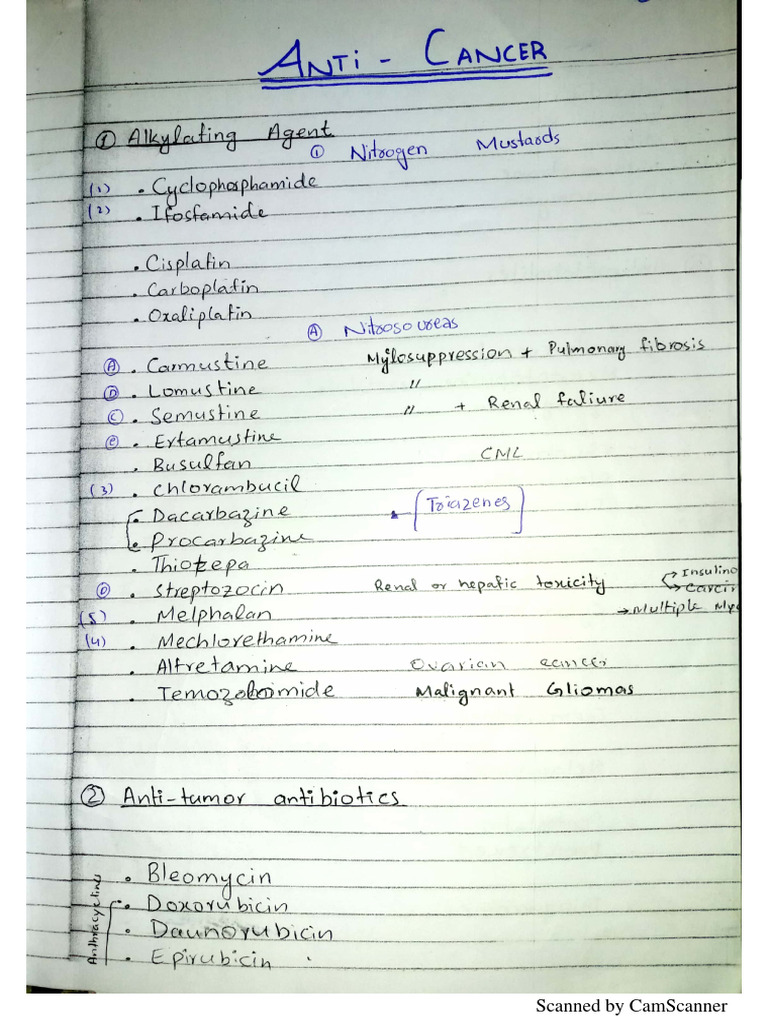 ANTI - CANCER
① Alkylating Agent
① Nitrogen Mustards
(1) . Cyclophosphamide
(2) . Ifosfamide
. Cisplatin
. Carboplatin
. Oxaliplatin
Ⓐ Nitrosoureas
Ⓐ . Carmustine Mylosuppression + Pulmonary fibrosis
Ⓓ . Lomustine "
Ⓒ . Semustine " + Renal faliure
ⓔ . Ertamustine
. Busulfan CML
(3) . Chlorambucil
. Dacarbazine [Triazenes]
. Procarbazine
. Thiotepa
Ⓓ . Streptozocin Renal or hepatic toxicity → Insulino
→ Carcin
(5) . Melphalan → Multiple Mye
(4) . Mechlorethamine
. Altretamine Ovarian cancer
. Temozolomide Malignant Gliomas
② Anti-tumor antibiotics
. Bleomycin
Anthracyclines
. Doxorubicin
. Daunorubicin
. Epirubicin
Scanned by CamScanner